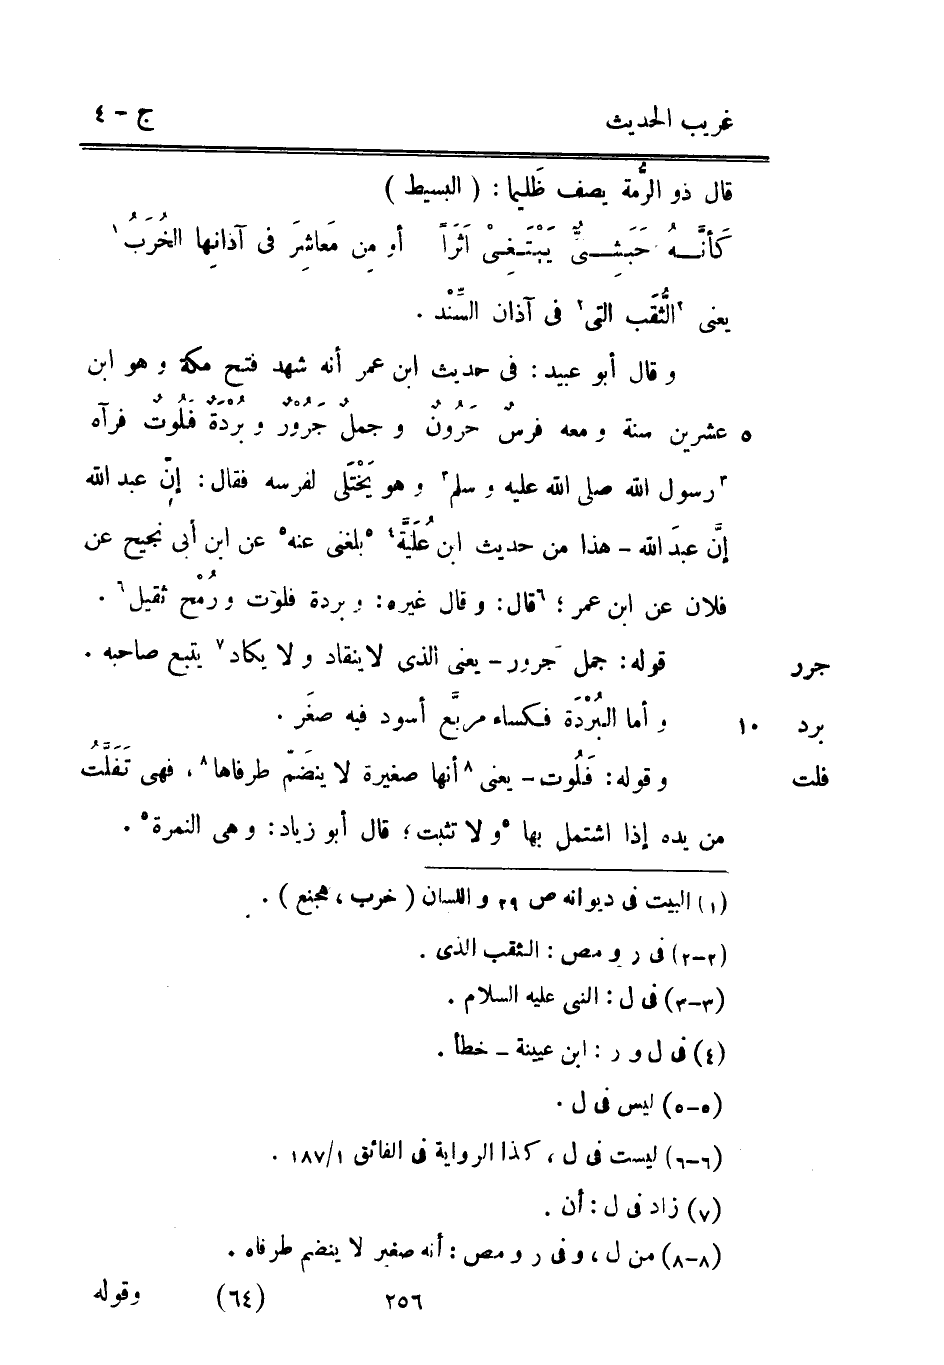 غريب الحديث ج - ٤
قال ذو الرُّمة يصف ظَليما : ( البسيط )
كَأنَّـــهُ حَبَشِـــىٌّ يَبْتَـغِـىْ اَثَراً أو مِن مَعاشِرَ فى آذانِها الخُرَبُ ¹
يعنى ²الثُّقَب التى² فى آذان السِّنْد .
و قال أبو عبيد : فى حديث ابن عمر أنه شهد فتح مكة و هو ابن
٥ عشرين سنة و معه فرسٌ حَرُونٌ و جملٌ جَرُوْرٌ و بُرْدَةٌ فَلُوتٌ فرآه
³رسول الله صلى الله عليه و سلم³ و هو يَخْتَلى لفرسه فقال : إنّ عبد الله
إنَّ عبدَ الله – هذا من حديث ابن عُلَيَّة⁴ ⁵بلغنى عنه⁵ عن ابن أبى نجيح عن
فلان عن ابن عمر ؛ ⁶قال : و قال غيره : و بردة فلوت و رُمْح ثقيل⁶ .
جرر قوله : جمل جَرور – يعنى الذى لاينقاد و لا يكاد⁷ يتبع صاحبه .
برد ١٠ و أما البُرْدَة فكساء مربَّع أسود فيه صغَر .
فلت و قوله : فَلُوت – يعنى ⁸أنها صغيرة لا ينضَمّ طرفاها⁸ ، فهى تَفَلَّتُ
من يده إذا اشتمل بها ⁵و لا تثبت ؛ قال أبو زياد : و هى النمرة⁵ .
(١) البيت فى ديوانه ص ٢٩ و اللسان ( خرب ، هجنع ) .
(٢–٢) فى ر و مص : الثقب الذى .
(٣–٣) فى ل : النبى عليه السلام .
(٤) فى ل و ر : ابن عيينة – خطأ .
(٥–٥) ليس فى ل .
(٦–٦) ليست فى ل ، كذا الرواية فى الفائق ١/١٨٧ .
(٧) زاد فى ل : أن .
(٨–٨) من ل ، و فى ر و مص : أنه صغير لا ينضم طرفاه .
٢٥٦ (٦٤) وقوله